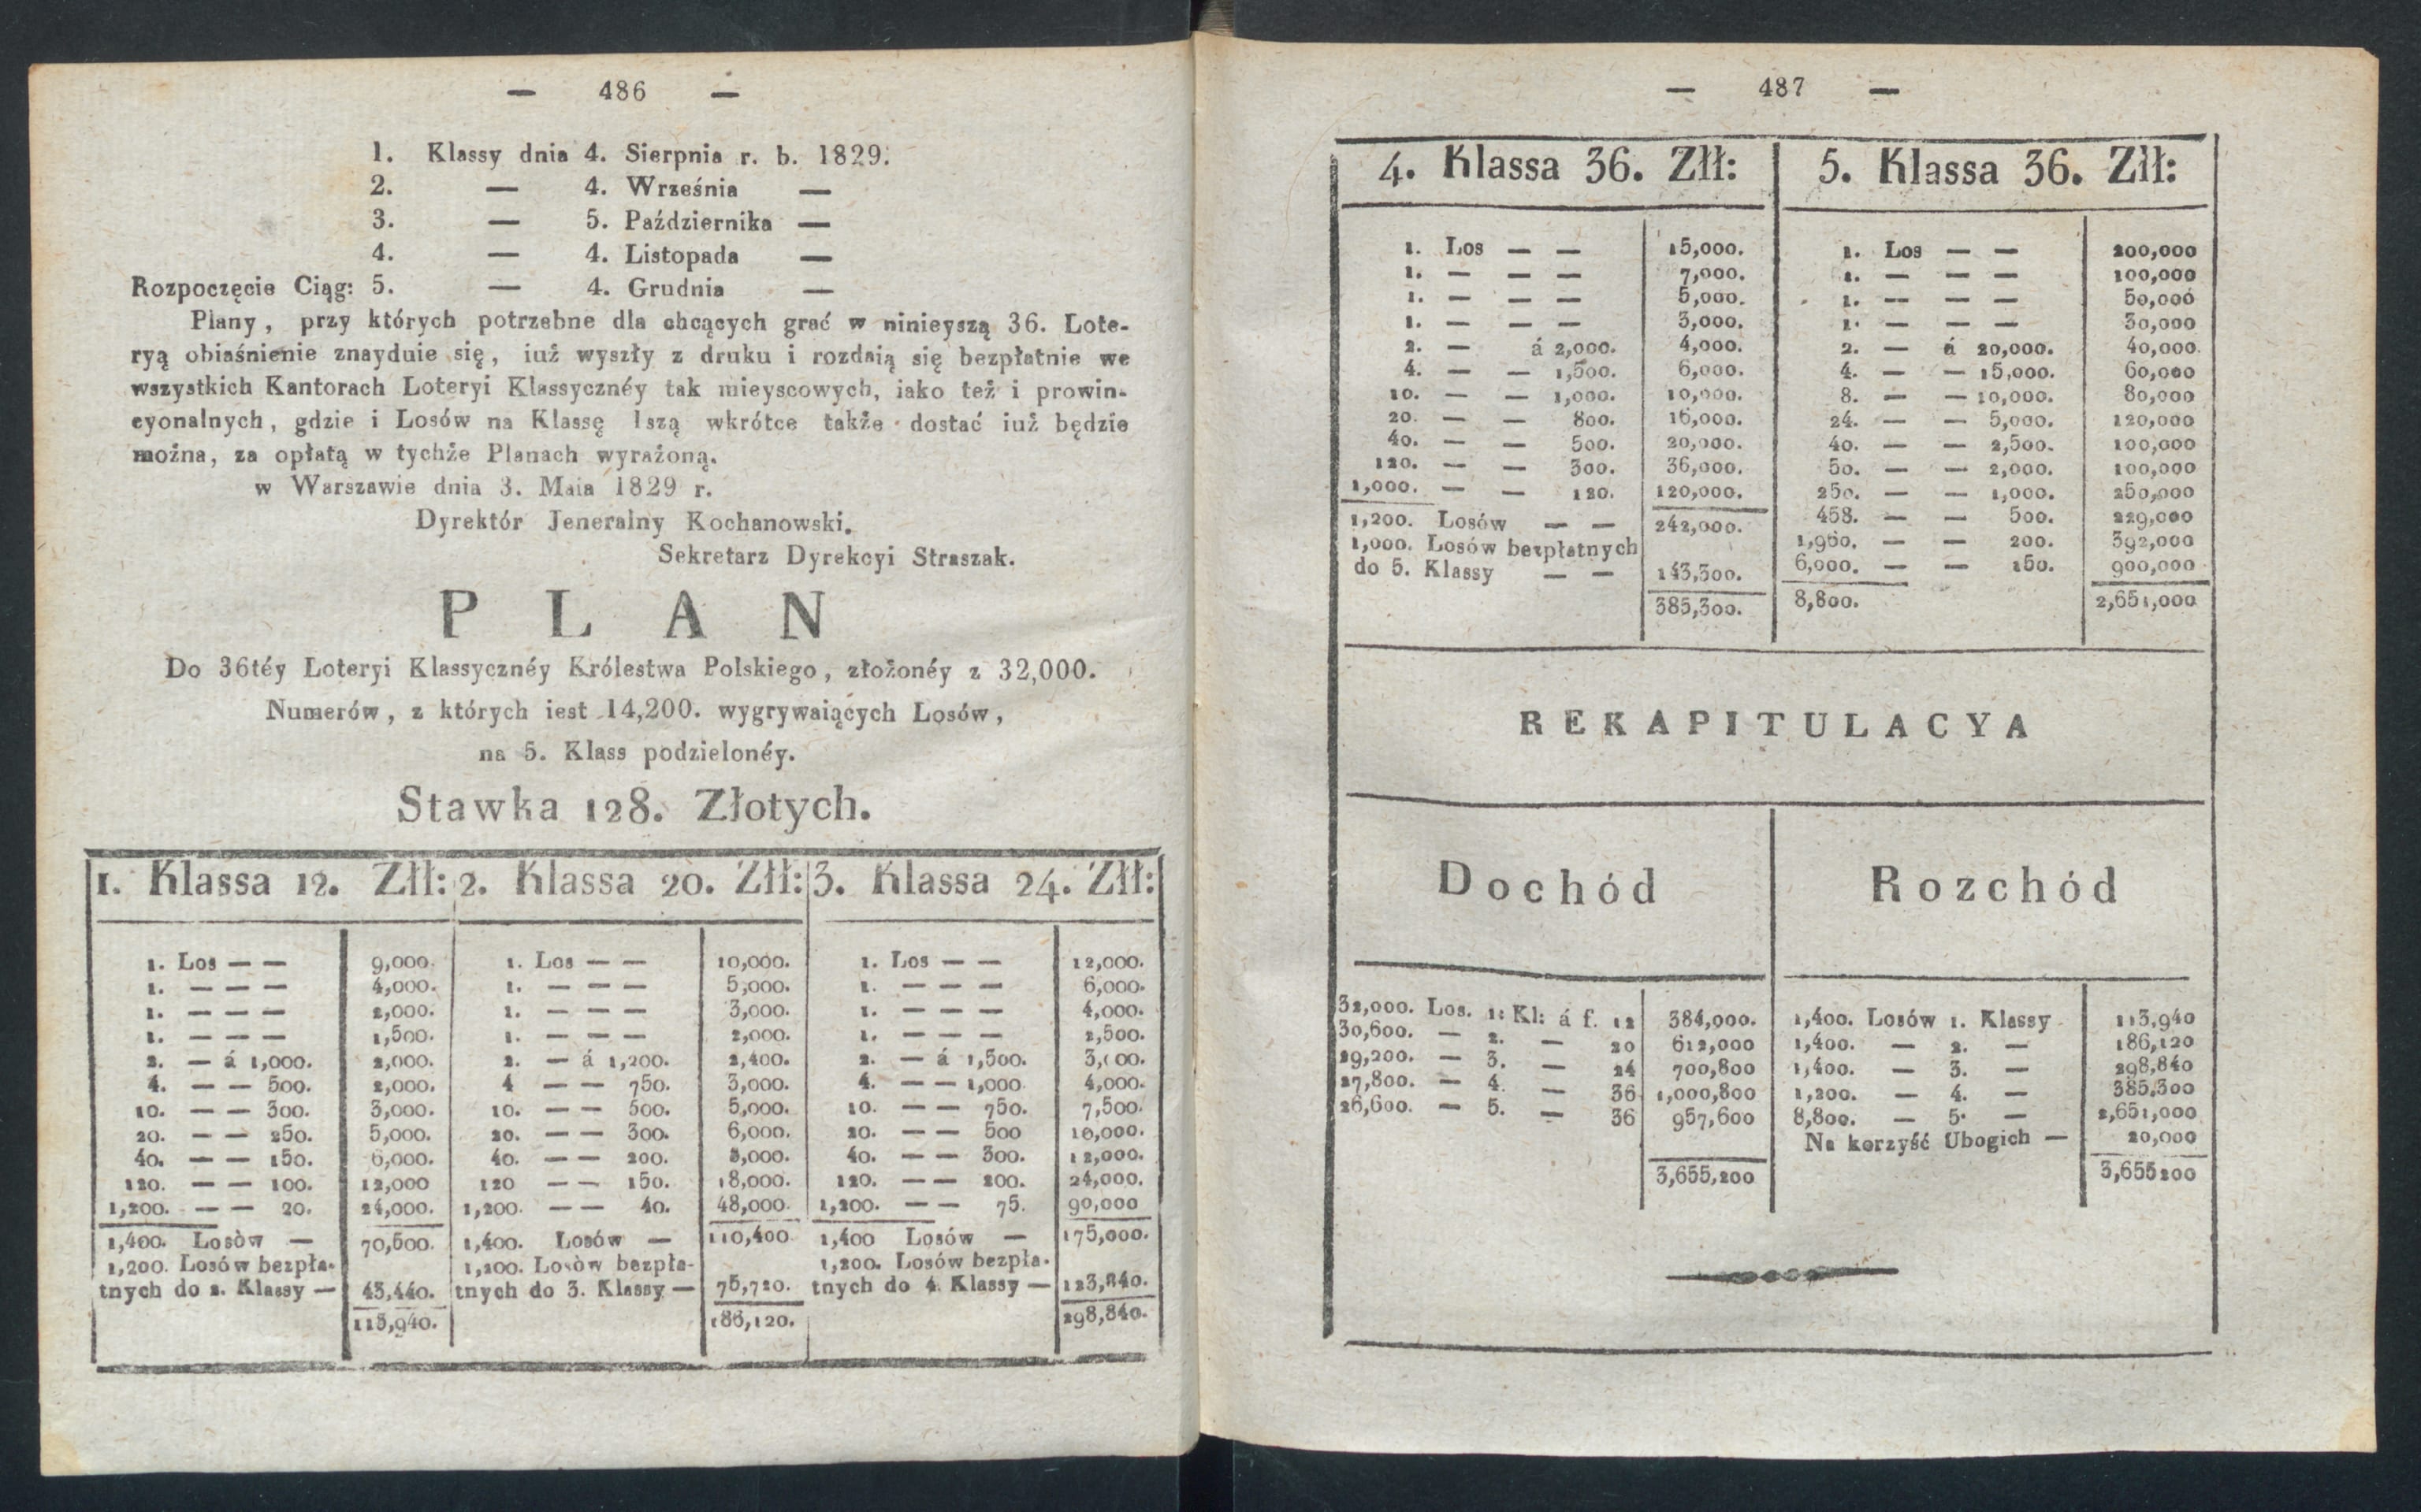 — 486 —
1. Klassy dnia 4. Sierpnia r. b. 1829.
2. — 4. Września —
3. — 5. Października —
4. — 4. Listopada —
Rozpoczęcie Ciąg: 5. — 4. Grudnia —
Plany, przy których potrzebne dla chcących grać w ninieyszą 36. Lote-
ryą obiaśnienie znayduie się, iuż wyszły z druku i rozdaią się bezpłatnie we
wszystkich Kantorach Loteryi Klassycznéy tak mieyscowych, iako też i prowin-
cyonalnych, gdzie i Losów na Klassę 1szą wkrótce także dostać iuż będzie
można, za opłatą w tychże Planach wyrażoną.
w Warszawie dnia 3. Maia 1829 r.
Dyrektór Jeneralny Kochanowski.
Sekretarz Dyrekcyi Straszak.
PLAN
Do 36téy Loteryi Klassycznéy Królestwa Polskiego, złożonéy z 32,000.
Numerów, z których iest 14,200. wygrywaiących Losów,
na 5. Klass podzielonéy.
Stawka 128. Złotych.
1. Klassa 12. Złł:
1. Los — — 9,000.
1. — — — 4,000.
1. — — — 2,000.
1. — — — 1,500.
2. — á 1,000. 2,000.
4. — — 500. 2,000.
10. — — 300. 3,000.
20. — — 250. 5,000.
40. — — 150. 6,000.
120. — — 100. 12,000
1,200. — — 20. 24,000.
1,400. Losòw — 70,500.
1,200. Losów bezpła-
tnych do 2. Klassy — 43,440.
113,940.
2. Klassa 20. Złł:
1. Los — — 10,000.
1. — — — 5,000.
1. — — — 3,000.
1. — — — 2,000.
2. — á 1,200. 2,400.
4 — — 750. 3,000.
10. — — 500. 5,000.
20. — — 300. 6,000.
40. — — 200. 8,000.
120 — — 150. 18,000.
1,200. — — 40. 48,000.
1,400. Losów — 110,400
1,200. Losòw bezpła-
tnych do 3. Klassy — 75,720.
186,120.
3. Klassa 24. Złł:
1. Los — — 12,000.
1. — — — 6,000.
1. — — — 4,000.
1. — — — 2,500.
2. — á 1,500. 3,000.
4. — — 1,000 4,000.
10. — — 750. 7,500.
20. — — 500 10,000.
40. — — 300. 12,000.
120. — — 200. 24,000.
1,200. — — 75. 90,000
1,400 Losów — 175,000.
1,200. Losów bezpła-
tnych do 4. Klassy — 123,840.
298,840.
— 487 —
4. Klassa 36. Złł:
1. Los — — 15,000.
1. — — — 7,000.
1. — — — 5,000.
1. — — — 3,000.
2. — á 2,000. 4,000.
4. — — 1,500. 6,000.
10. — — 1,000. 10,000.
20. — — 800. 16,000.
40. — — 500. 20,000.
120. — — 300. 36,000.
1,000. — — 120. 120,000.
1,200. Losów — — 242,000.
1,000. Losów bezpłatnych
do 5. Klassy — — 143,300.
385,300.
5. Klassa 36. Złł:
1. Los — — 200,000
1. — — — 100,000
1. — — — 50,000
1. — — — 30,000
2. — á 20,000. 40,000.
4. — — 15,000. 60,000
8. — — 10,000. 80,000
24. — — 5,000. 120,000
40. — — 2,500. 100,000
50. — — 2,000. 100,000
250. — — 1,000. 250,000
458. — — 500. 229,000
1,960. — — 200. 392,000
6,000. — — 150. 900,000
8,800. 2,651,000
REKAPITULACYA
Dochód
32,000. Los. 1: Kl: á f. 12 384,000.
30,600. — 2. — 20 612,000
29,200. — 3. — 24 700,800
27,800. — 4. — 36 1,000,800
26,600. — 5. — 36 957,600
3,655,200
Rozchód
1,400. Losów 1. Klassy 113,940
1,400. — 2. — 186,120
1,400. — 3. — 298,840
1,200. — 4. — 385,300
8,800. — 5. — 2,651,000
Na korzyść Ubogich — 20,000
3,655200